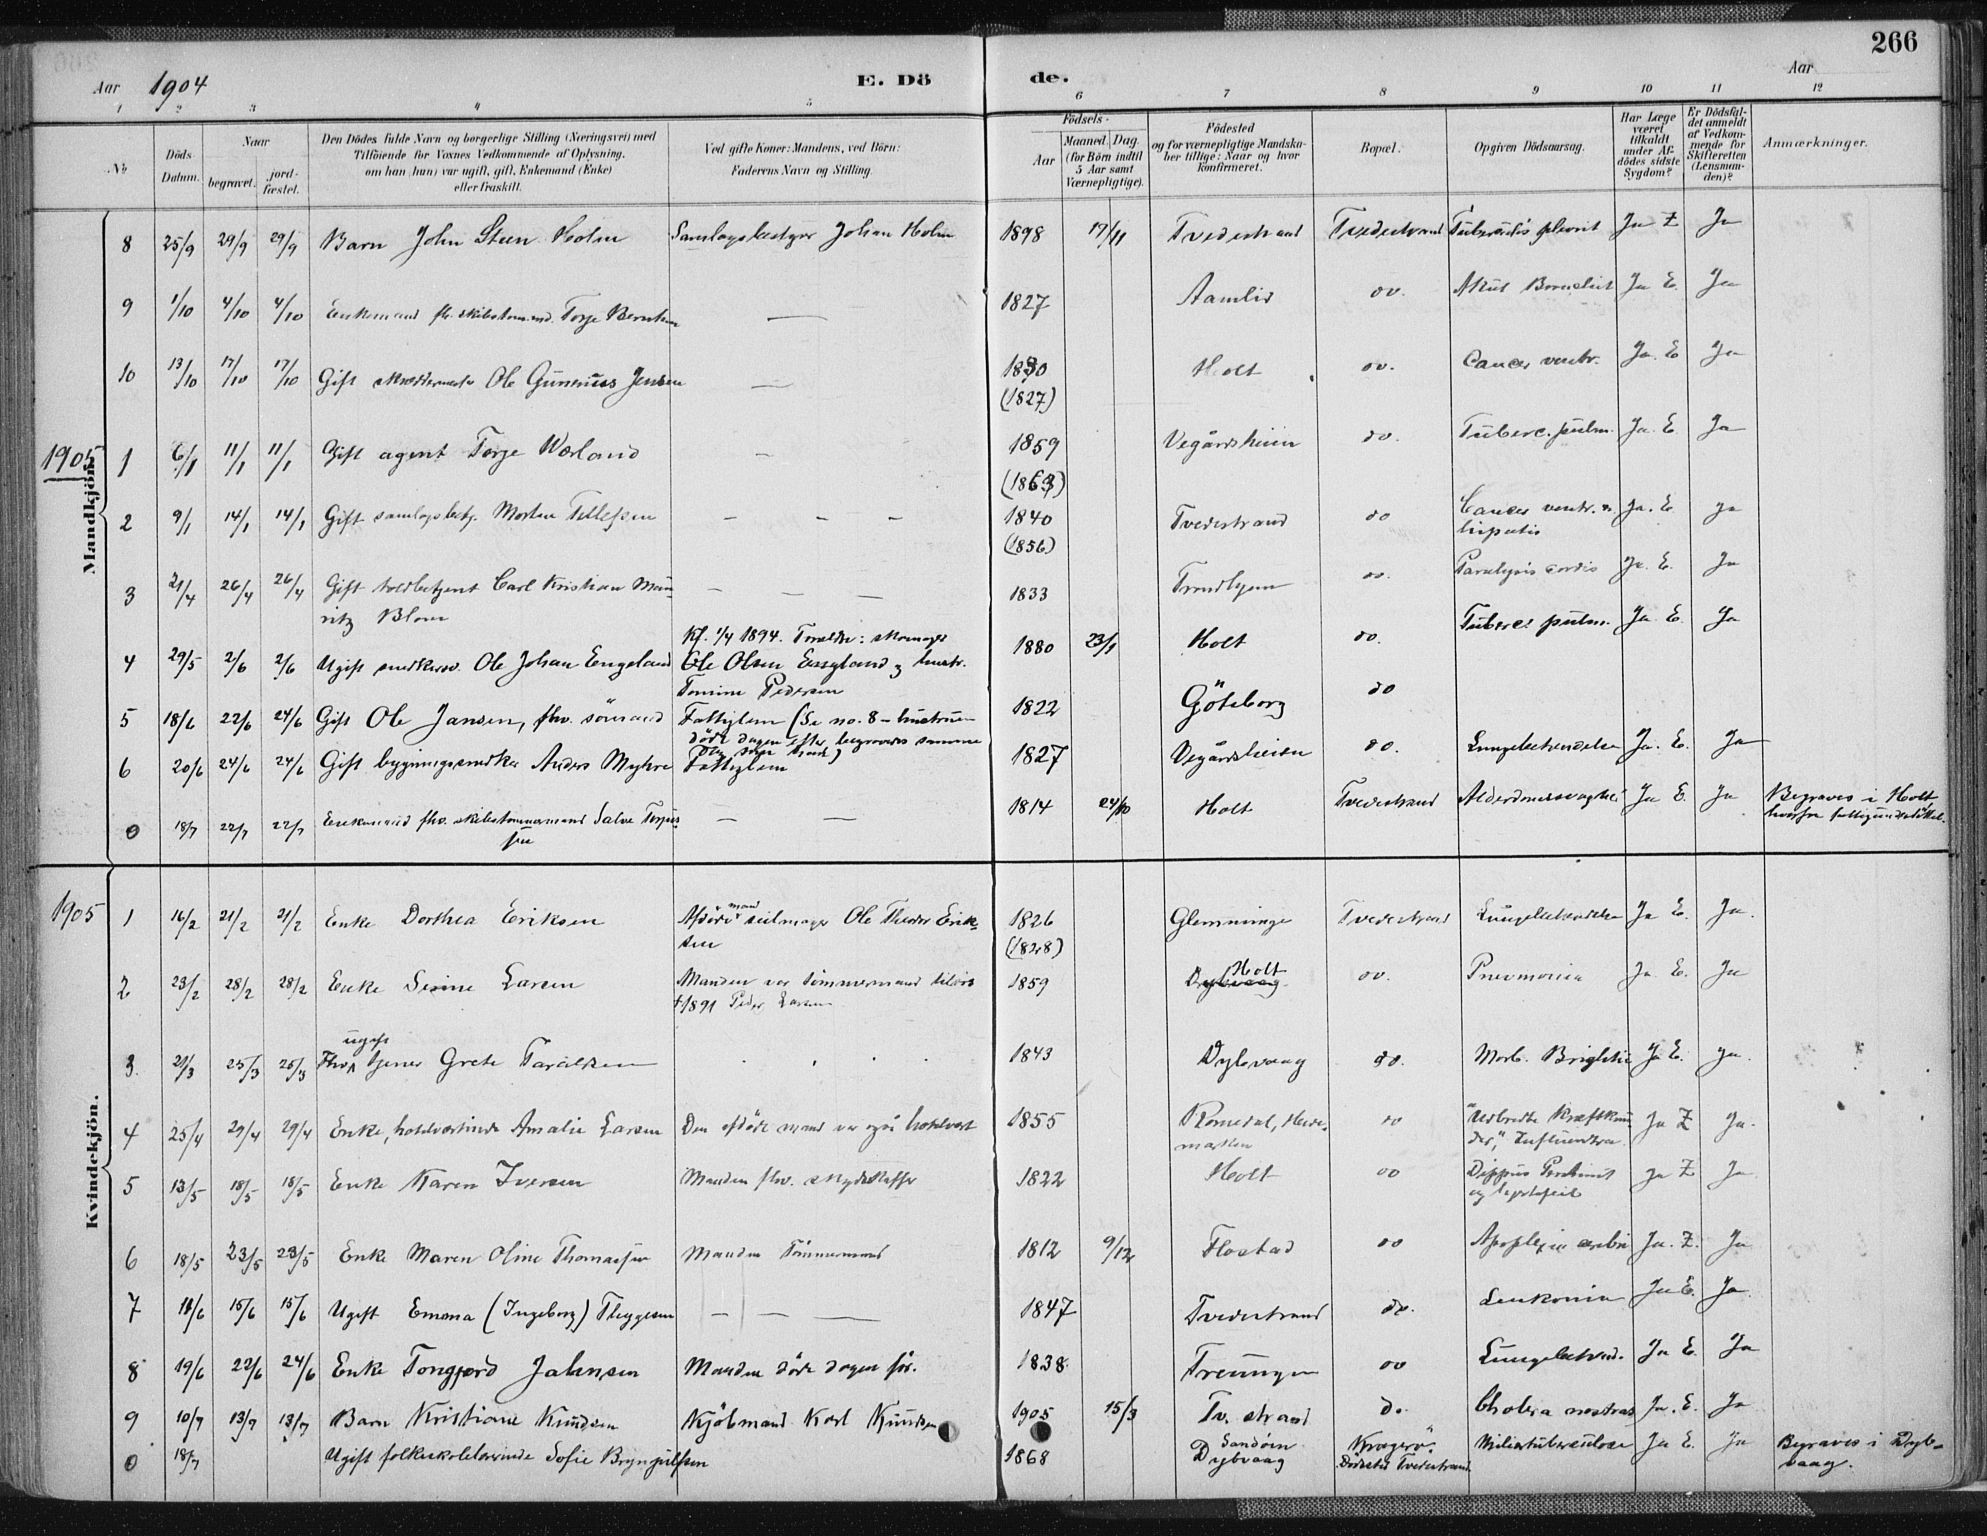 266
Aar 1904 E. Döde. Aar
1 2 3 4 5 6 7 8 9 10 11 12
No
Döds-Datum.
Naar begravet. jordfæstet.
Den Dödes fulde Navn og borgerlige Stilling (Næringsvei) med
Tilföiende for Voxnes Vedkommende af Oplysning,
om han (hun) var ugift, gift, Enkemand (Enke)
eller fraskilt.
Ved gifte Koner: Mandens, ved Börn:
Faderens Navn og Stilling.
Födsels-
Aar Maaned. Dag.
(for Börn indtil
5 Aar samt
Værnepligtige).
Födested
og for værnepligtige Mandska-
ber tillige: Naar og hvor
konfirmeret.
Bopæl.
Opgiven Dödsaarsag.
Har Læge
været
tilkaldt
under Af-
dödes sidste
Sygdom?
Er Dödsfal-
det anmeldt
af Vedkom-
mende for
Skifteretten
(Lensman-
den)?
Anmærkninger.
Mandkjön.
8 25/9 29/9 29/9 Barn John Steen Holm Samlagsbestyrer Johan Holm 1898 17/11 Tvedestrand Tvedestrand Ja Z Ja
9 1/10 4/10 4/10 Enkemand fhv. skibstømmmd. Torje 1827 Aamlid do. Akut Ja E. Ja
10 13/10 17/10 17/10 Gift skreddermester Ole Gunerius Jensen 1830 Holt do. Cancer ventr. Ja. E Ja
(1827)
1905
1 6/1 11/1 11/1 Gift agent Torje 1859 Vegårdsheien do. Tuberc. pulm. Ja. E. Ja
(1863)
2 9/1 14/1 14/1 Gift samlagsbetj. Morten Tellefsen – – – 1840 Tvedestrand do Cancer ventr. & Ja. E. Ja
(1856) hepatis
3 21/4 26/4 26/4 Gift toldbetjent Carl Kristian Mau- – – – 1833 Trondhjem do. Paralysis cordis Ja. E. Ja
ritz Blom
Kf. 1/4 1894. Forældre: skomager
4 29/5 2/6 2/6 Ugift snedkersv. Ole Johan Engeland Ole Olsen Engeland og hustr. 1880 23/1 Holt do. Tuberc. pulm. Ja E. Ja
Tomine Pedersen
5 18/6 22/6 24/6 Gift Ole Jansen, fhv. sömand Fattiglem (Se no. 8 – hustruen 1822 Göteborg do
döde dagen efter, begravedes samme
6 20/6 24/6 24/6 Gift bygningssnedker Anders Myhre Fattiglem 1827 Vegårdsheien do. Lungebetændelse Ja. E. Ja
0 18/7 22/7 22/7 Enkemand fhv. skibstømmermand Salve Torjus- – – 1814 24/10 Holt Tvedestrand Alderdomssvaghed Ja E. Ja Begraves i Holt
sen hvorfra fattigunderstöttet.
Kvindekjön.
1905
1 16/2 21/2 21/2 Enke Dorthea Eriksen Afdöde mand seilmager Ole Theodor Erik- 1826 Glemminge Tvedestrand Lungebetændelse Ja E. Ja.
sen (1828)
2 23/2 28/2 28/2 Enke Larsen Manden var tømmermand tilsös 1859 Dybvaag Holt do. Pneumonia Ja E. Ja
†1891 Peder Larsen
3. 21/3 25/3 25/3 Fhv. ugift tjener Grete Taraldsen 1843 Dybvaag do. Morb. Brightii Ja E. Ja.
4 25/4 29/4 29/4 Enke, hotelværtinde Amalie Larsen Den afdöde mand var også hotelvært 1855 Romedal, Hede- do "Udbredte Kræftknu- Ja Z Ja.
marken der," Influentza
5 13/5 18/5 18/5 Enke Karen Iversen Manden fhv. skydsskaffer 1822 Holt do Ja Z Ja
6 18/5 23/5 23/5 Enke Maren Oline Thomassen Manden Tömmermand 1812 9/12 Flostad do Apoplexia cerebri Ja. Z. Ja
7 11/6 15/6 15/6 Ugift Emma (Ingeborg) Thygesen – – 1847 Tvedestrand do. Ja E. Ja.
8 19/6 22/6 24/6 Enke Tongjerd Johnsen Manden döde dagen för. 1838 Treungen do Lungebetænd. Ja E. Ja
9 10/7 13/7 13/7 Barn Kristiane Knudsen Kjöbmand Karl Knudsen 1905 15/3 Tv. strand do Cholera nostras Ja. E. Ja
0 18/7 Ugift folkeskolelærerinde Sofie Brynjulfsen 1868 Sandöen Dybvaag Kragerö. Miliærtuberculose Ja E. Ja Begraves i Dyb-
Dödssted Tvedestrand vaag.